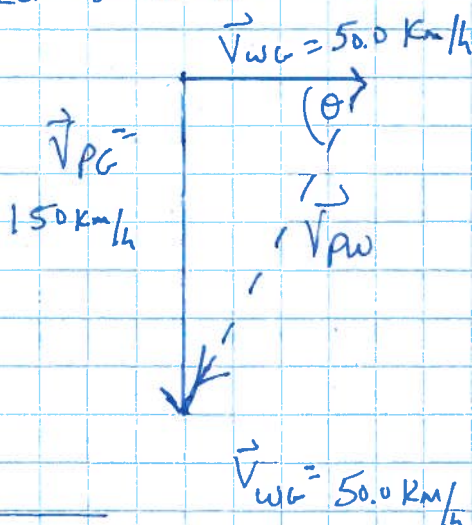 V⃗WG = 50.0 Km/h
θ
V⃗PG =
150 Km/h
V⃗PW
V⃗WG = 50.0 KM/h